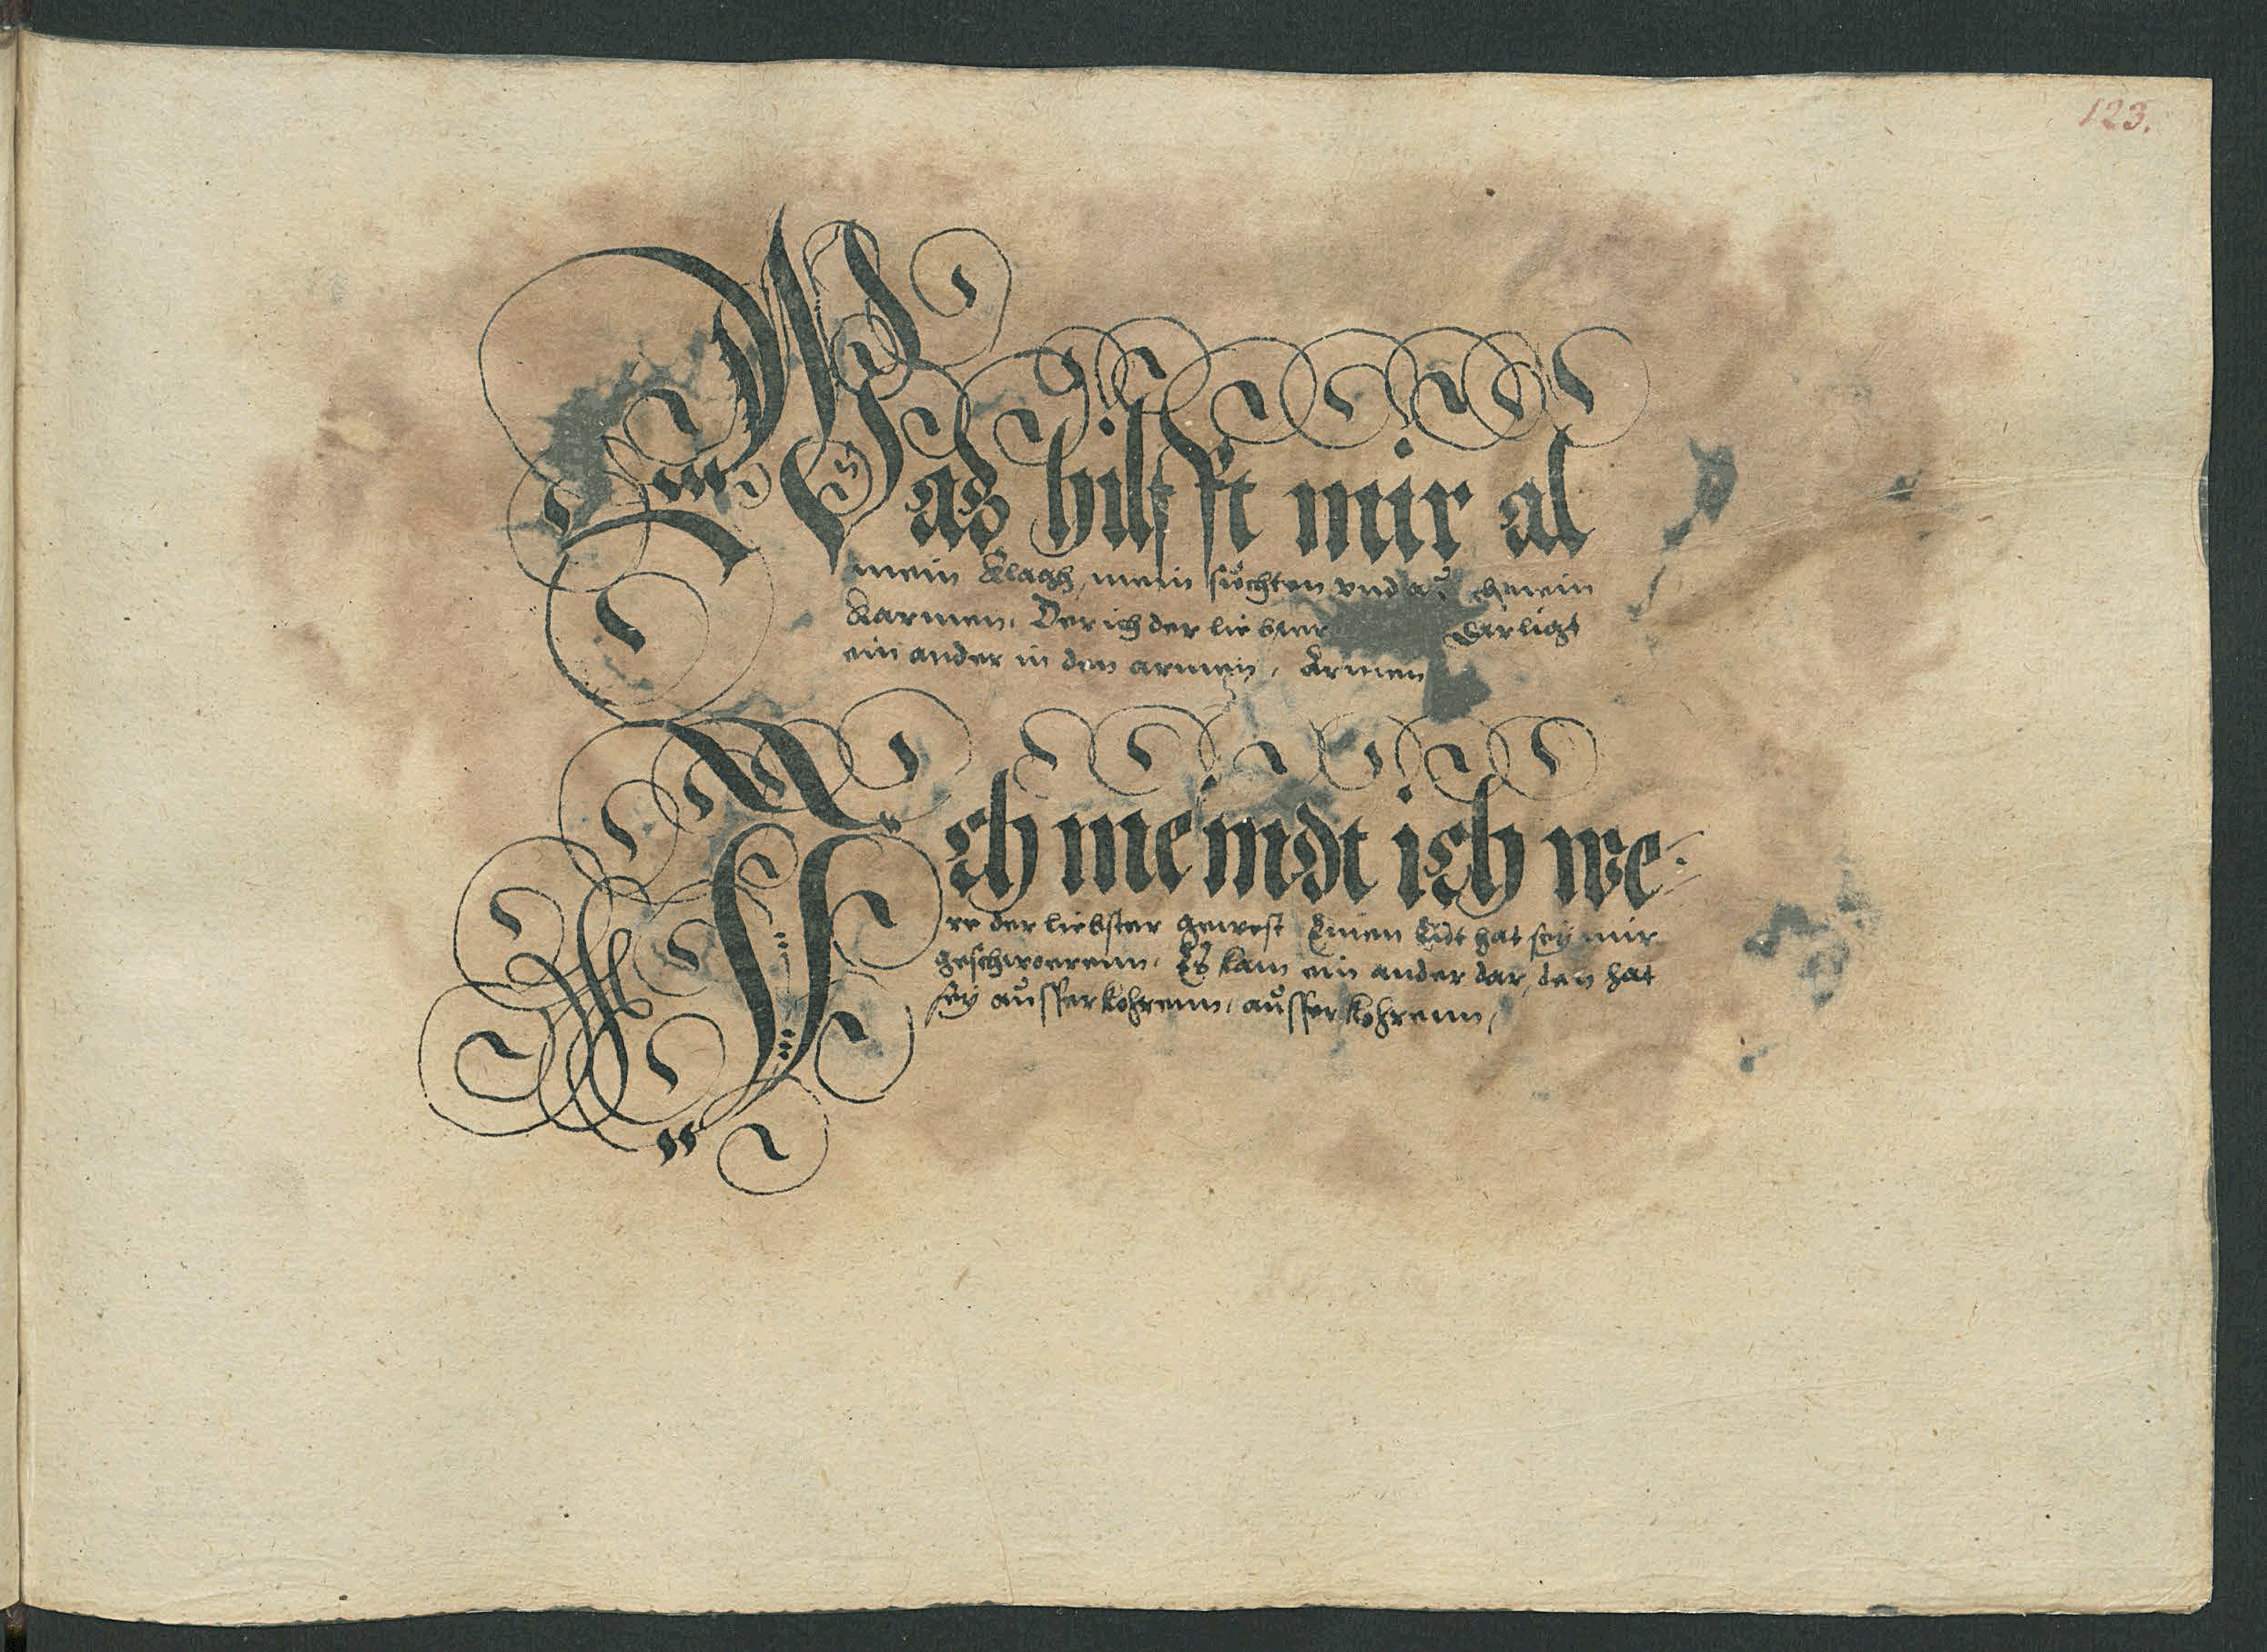 123.
Was hilfft mir al
mein klagh, mein süchten vnd mein
karmen. Der ich der liebter Dar ligt
ein ander in den armen, Armen
Ich meindt ich we:
re der liebster gewest Einen Eidt hat sey mir
geschwoerenn. Es kam ein ander dar, den hat
sey aŭsserkohrenn, aŭsserkohrenn,